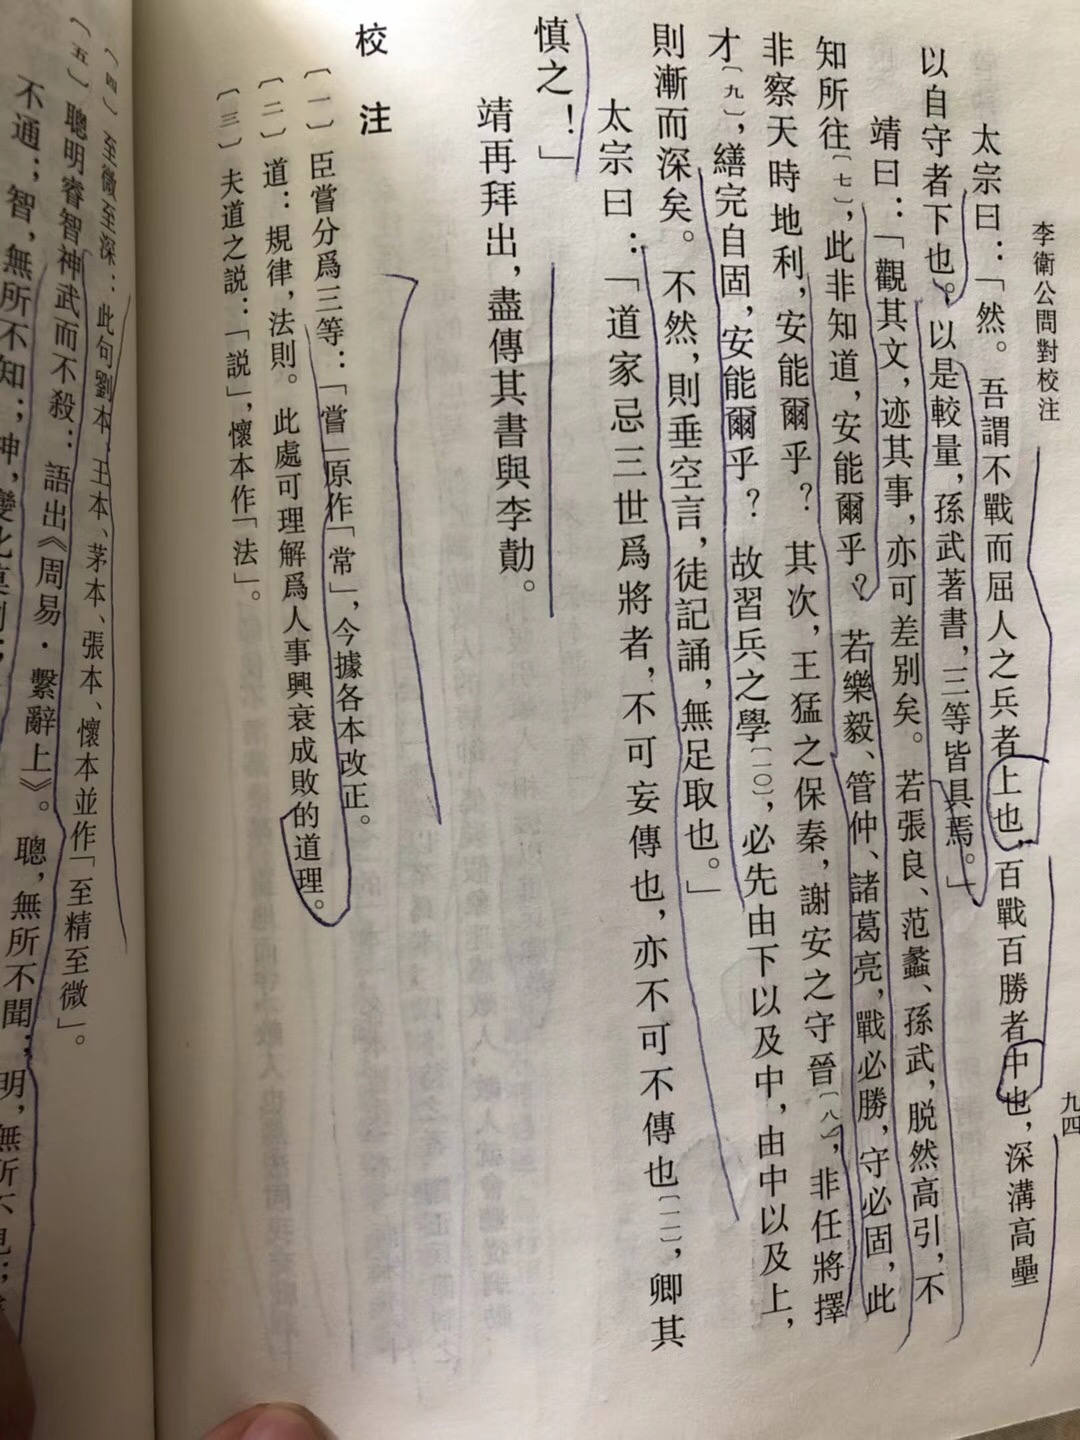 李衛公問對校注
九四
太宗曰：「然。吾謂不戰而屈人之兵者上也，百戰百勝者中也，深溝高壘
以自守者下也。以是較量，孫武著書，三等皆具焉。」
靖曰：「觀其文，迹其事，亦可差别矣。若張良、范蠡、孫武，脱然高引，不
知所往〔七〕，此非知道，安能爾乎？若樂毅、管仲、諸葛亮，戰必勝，守必固，此
非察天時地利，安能爾乎？其次，王猛之保秦，謝安之守晉〔八〕，非任將擇
才〔九〕，繕完自固，安能爾乎？故習兵之學〔一〇〕，必先由下以及中，由中以及上，
則漸而深矣。不然，則垂空言，徒記誦，無足取也。」
太宗曰：「道家忌三世爲將者，不可妄傳也，亦不可不傳也〔一一〕，卿其
慎之！」
靖再拜出，盡傳其書與李勣。
校注
〔一〕臣嘗分爲三等：「嘗」原作「常」，今據各本改正。
〔二〕道：規律，法則。此處可理解爲人事興衰成敗的道理。
〔三〕夫道之説：「説」，懷本作「法」。
〔四〕至微至深：此句劉本、王本、茅本、張本、懷本並作「至精至微」。
〔五〕聰明睿智神武而不殺：語出《周易·繫辭上》。聰，無所不聞；明，無所不見；
不通；智，無所不知；神，變化莫測；